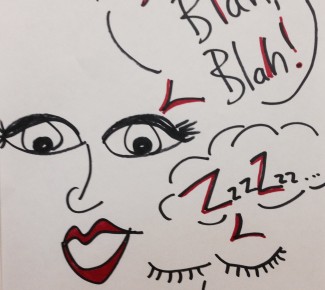 Blah,
Blah!
ZzzZzz...